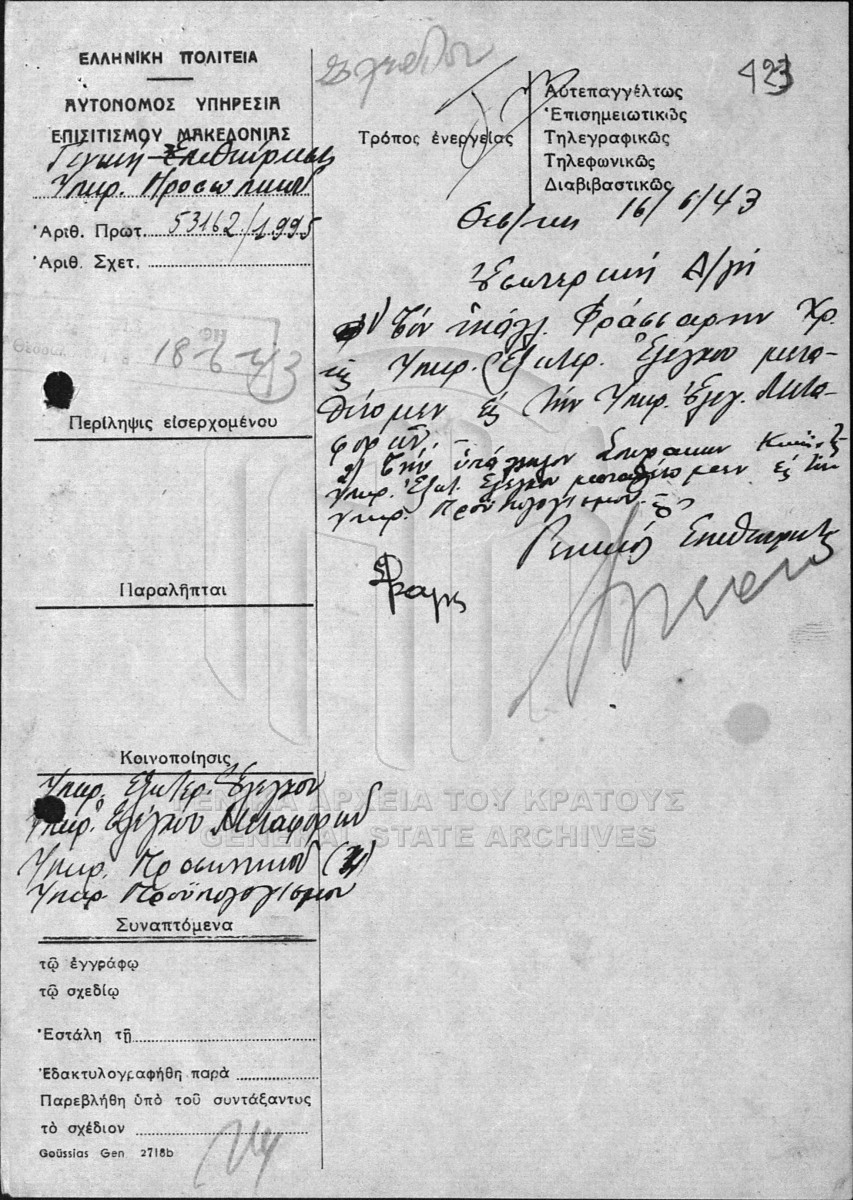 ΕΛΛΗΝΙΚΗ ΠΟΛΙΤΕΙΑ
ΑΥΤΟΝΟΜΟΣ ΥΠΗΡΕΣΙΑ
ΕΠΙΣΙΤΙΣΜΟΥ ΜΑΚΕΔΟΝΙΑΣ
Γενική Επιθεώρησις
Υπηρ. Προσωπικού
Ἀριθ. Πρωτ. 53162/1995
Ἀριθ. Σχετ.
18-6-43
Περίληψις εἰσερχομένου
Παραλῆπται
Κοινοποίησις
Υπηρ. Εξωτερ. Ελέγχου
Υπηρ. Ελέγχου Μεταφορών
Υπηρ. Προσωπικού
Υπηρ. Προϋπολογισμού
Συναπτόμενα
τῷ ἐγγράφῳ
τῷ σχεδίῳ
Ἐστάλη τῇ
Ἐδακτυλογραφήθη παρὰ
Παρεβλήθη ὑπὸ τοῦ συντάξαντος
τὸ σχέδιον
Goüssias Gen 2718b
Σχέδιον
423
Τρόπος ἐνεργείας
Αὐτεπαγγέλτως
Ἐπισημειωτικῶς
Τηλεγραφικῶς
Τηλεφωνικῶς
Διαβιβαστικῶς
Θεσ/νικη 16/6/43
Εσωτερική Δ/γή
1) Τόν υπάλλ. Φράσσαρην Χρ.
της Υπηρ. Εξωτερ. Ελέγχου μετα-
θέτομεν εις την Υπηρ. Ελεγ. Μετα-
φορών.
2) Την υπάλληλον
Υπηρ. Εξωτ. Ελέγχου μεταθέτομεν εις την
Υπηρ. Προϋπολογισμού.
Ο
Γενικός Επιθεωρητής
ΓΕΝΙΚΑ ΑΡΧΕΙΑ ΤΟΥ ΚΡΑΤΟΥΣ
GENERAL STATE ARCHIVES